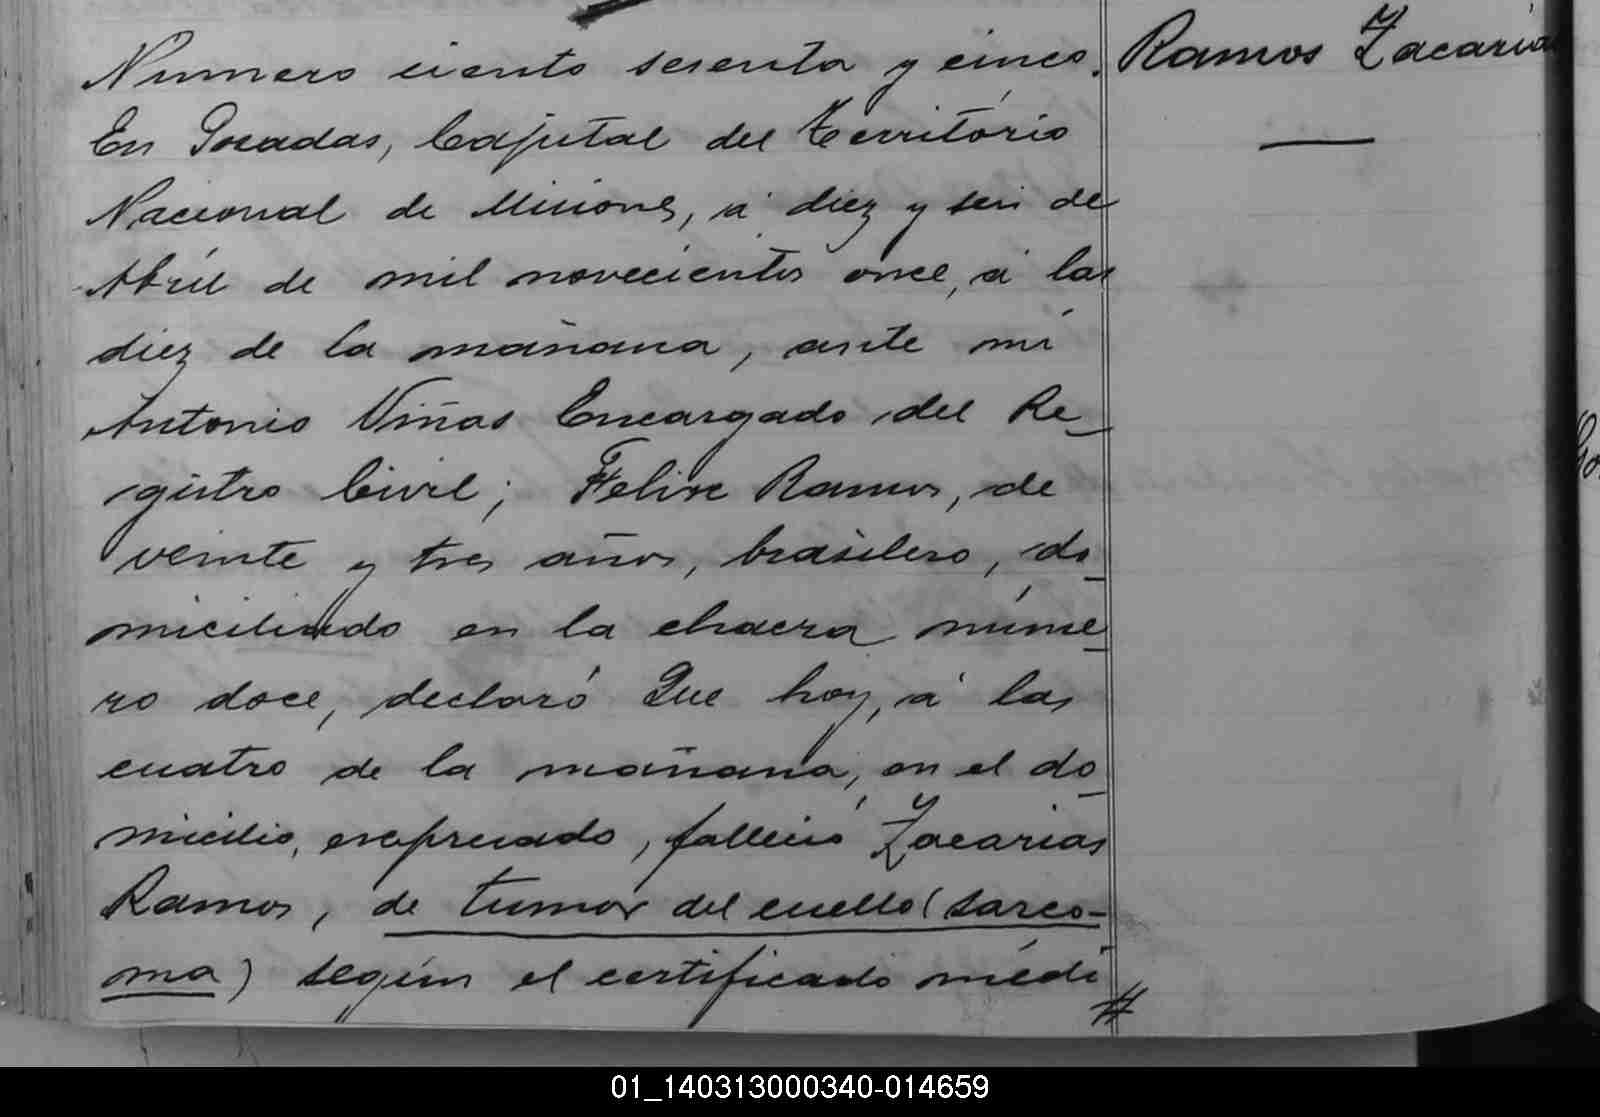 Numero ciento sesenta y cinco. Ramos Zacarias
En Posadas, Capital del Território
Nacional de Misiones, á diez y seis de
Abril de mil novecientos once, á las
diez de la mañana, ante mi
Antonio Viñas Encargado del Re_
gistro Civil; Felipe Ramos, de
veinte y tres años, brasilero, do_
miciliado en la chacra núme_
ro doce, declaró Que hoy, á las
cuatro de la mañana, en el do_
micilio, expresado, falleció Zacarias
Ramos, de tumor del cuello (sarco-
ma) según el certificado médi
01_140313000340-014659